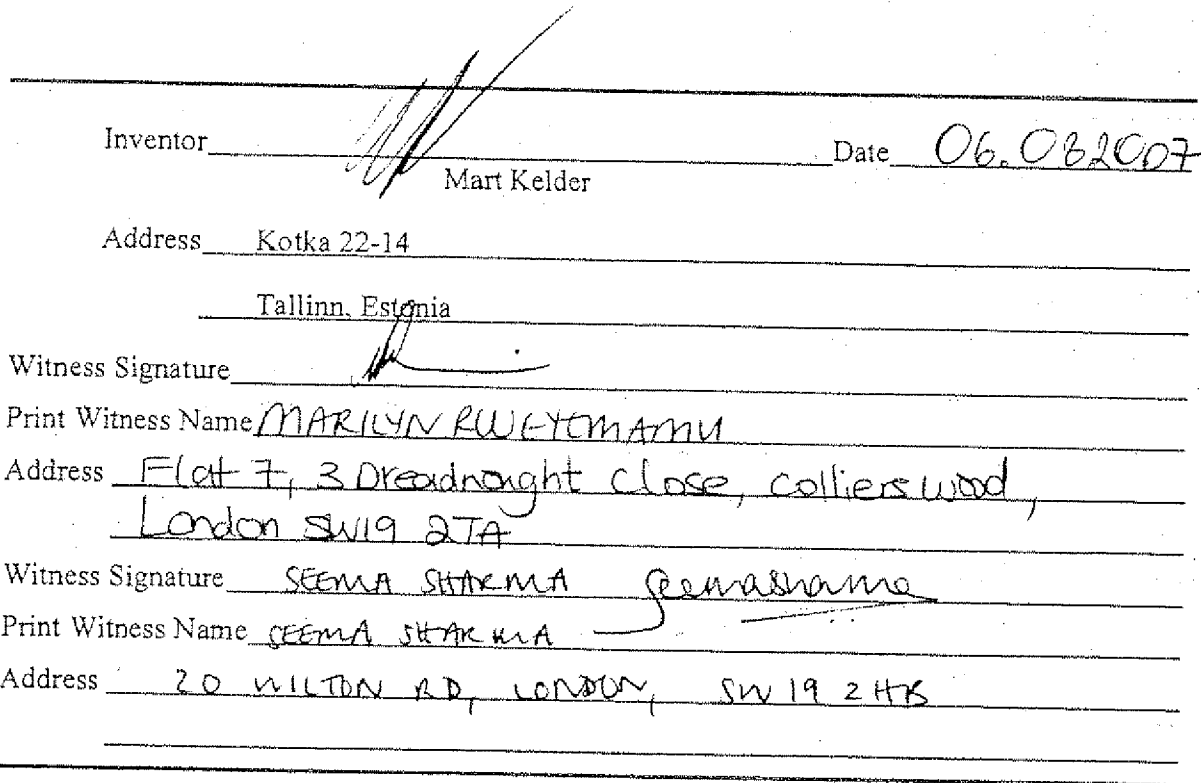 Inventor Date 06.08.2007
Mart Kelder
Address Kotka 22-14
Tallinn, Estonia
Witness Signature
Print Witness Name MARILYN RWEYEMAMU
Address Flat 7, 3 Dreadnought Close, Colliers Wood,
London SW19 2TA
Witness Signature SEEMA SHARMA Seemasharma
Print Witness Name SEEMA SHARMA
Address 20 WILTON RD, LONDON, SW19 2HB